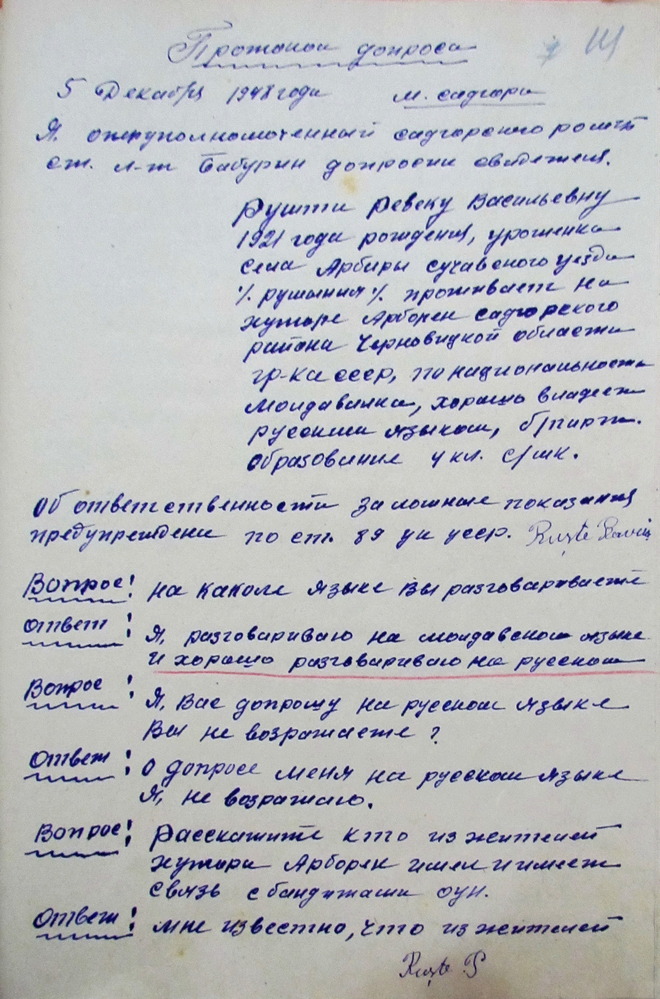 Протокол допроса
111
5 Декабря 1948 года м. садгора
Я. оперуполномоченный садгорского ромгб
ст. л-т Бабурин допросил свидетеля.
Рушти Ревеку Васильевну
1921 года рождения, уроженка
села Арборы сучавского уезда
%румыния% проживает на
хуторе Арборен садгорского
района Черновицкой области
гр-ка ссср, по национальности
молдаванка, хорошо владеет
русским языком, б/парт.
образование 4 кл. с/шк.
Об ответственности за ложные показания
предупреждена по ст. 89 ук усср. Ruşte
Вопрос! на каком языке Вы разговариваете
ответ! Я, разговариваю на молдавском языке
и хорошо разговариваю на русском
Вопрос! Я, Вас допрошу на русском языке
Вы не возражаете?
Ответ! О допросе меня на русском языке
Я, не возражаю.
Вопрос! Расскажите кто из жителей
хутора Арборен имел и имеет
связь с бандитами оун.
Ответ! мне известно, что из жителей
Ruşte P